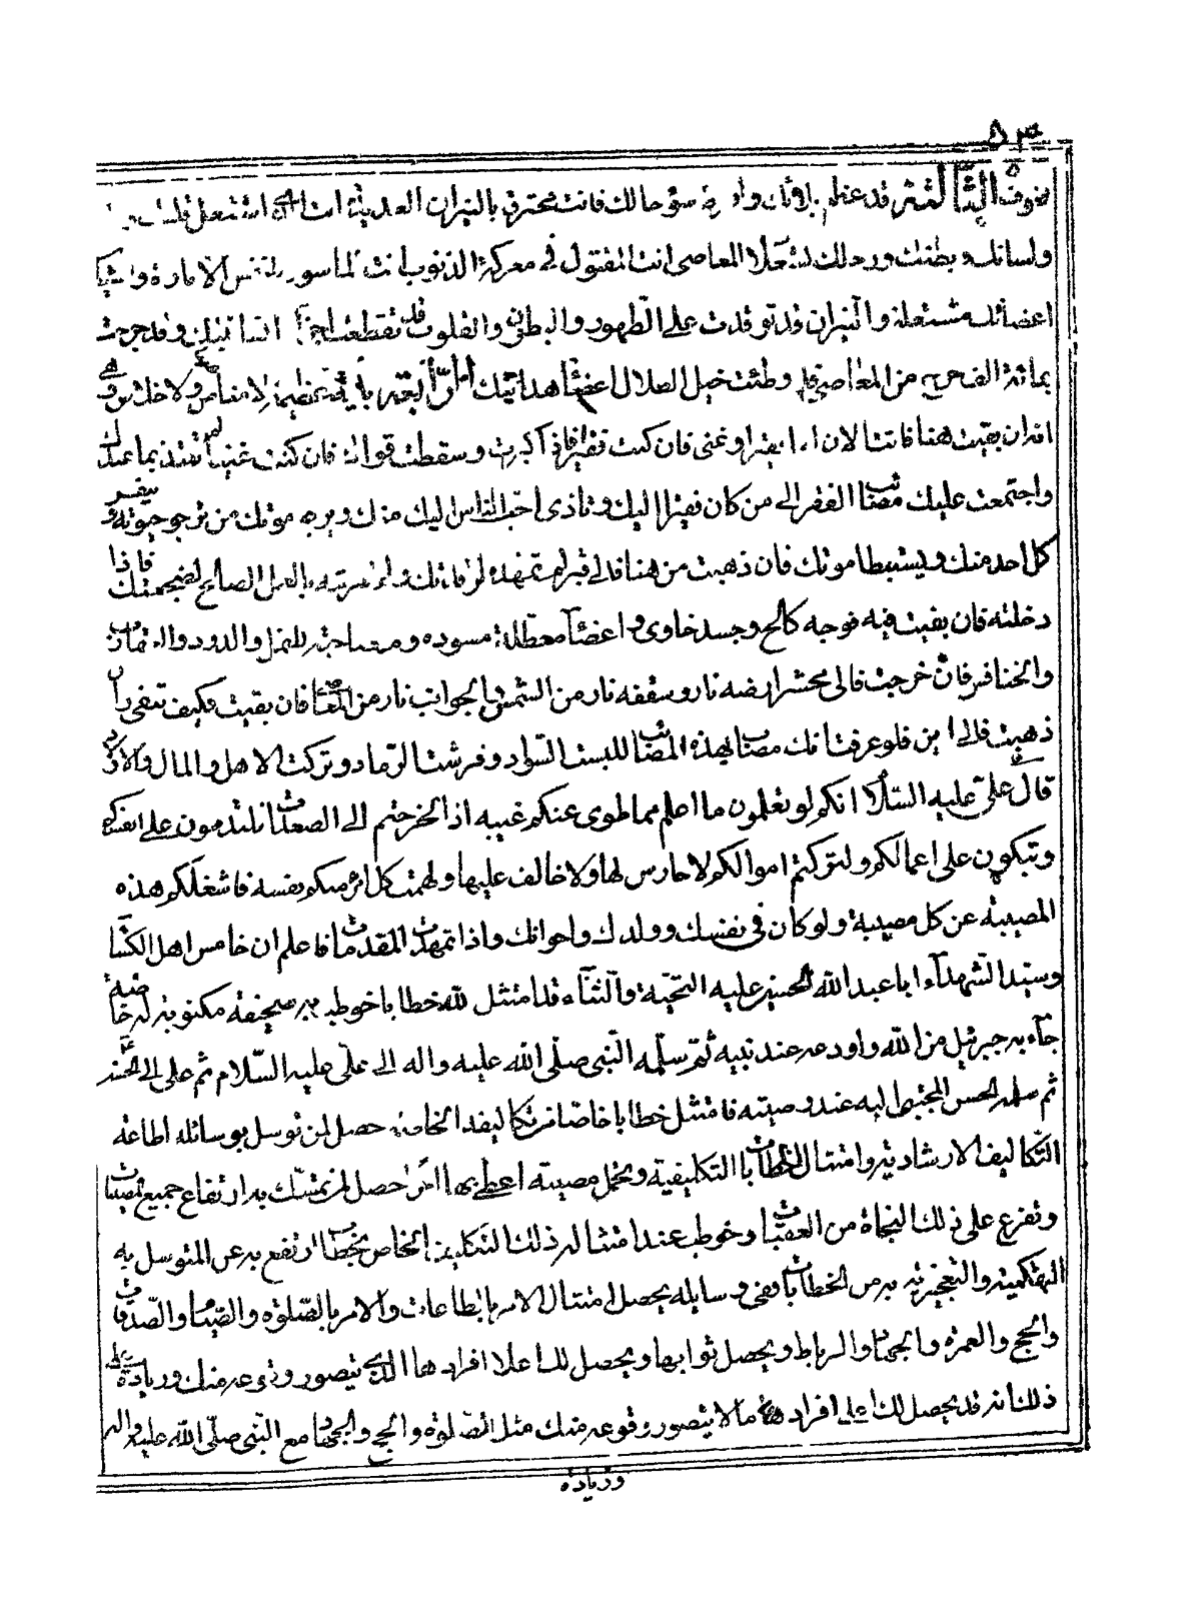 ٥٣
الثالث عشر قد عظم بلاؤك و سوء حالك فانت محترق بالنيران العديدة انت الذى اشتعل قلبك
ولسانك و بطنك ورجلك المعاصى انت المقتول فى معركة الذنوب انت المأسور للنفس الامارة و
اعضائك مشتعلة والنيران قد توقدت على الظهور والبطون والقلوب قد تقطعت اجزاء انسانيتك وقد جرحت
بمائة الف جرح من المعاصى و وطئت خيل الضلال اعضاء هدايتك اما بقية عظيمة لا مناص ولا خلاص وهى
انه ان بقيت هنا فانت الان اما فقير او غنى فان كنت فقيرا فاذا كبرت و سقطت قواك فان كنت غنيا لم تلتذ بما عندك
واجتمعت عليك مصائب الفقر الى من كان فقيرا اليك وتاذى احب الناس اليك منك ويرجو موتك من ترجو حيوته و يتنفر
كل احد منك ويستبطأ موتك فان ذهبت من هنا فالى قبر لم تمهده لرقدتك ولم تفرشه بالعمل الصالح لضجعتك فاذا
دخلته فان بقيت فيه فوجه كالح و جسد خاوى و اعضاء معطلة مسوده و مصاحبة للنمل والدود والديدان
والخنافس فان خرجت فالى محشر ارضه نار و سقفه نار من الشمس والجوانب نار من فان بقيت فكيف تبقى وان
ذهبت فالى اين فلو عرفت انك مصاب بهذه المصائب للبست السواد و فرشت الرماد و تركت الاهل والمال والاولاد
قال على عليه السلام انكم لو تعلمون ما اعلم مما طوى عنكم غيبه اذا لخرجتم الى الصعدات تلتدمون على انفسكم
وتبكون على اعمالكم ولتركتم اموالكم لا حارس لها ولا خالف عليها و لهمت كل امرء منكم نفسه فاشغلكم هذه
المصيبة عن كل مصيبة ولو كان فى نفسك و ولدك و اخوانك واذا تمهدت المقدمات فاعلم ان خامس اهل الكساء
وسيد الشهداء ابا عبد الله الحسين عليه التحية والثناء قد امتثل لله خطابا خوطب به صحيفة مكتوبة له خاصة
جاء به جبرئيل من الله و اودعه عند نبيه ثم سلمه النبى صلى الله عليه واله الى على عليه السلام ثم على الى الحسن
ثم سلمه الحسن المجتبى اليه عند وصيته فامتثل خطابا خاصا من تكاليفه الخاصة حصل لمن توسل بوسائله اطاعة
التكاليف الارشادية و امتثال الخطابات التكليفية و تحمل مصيبة اعطى بها اجرا حصل لمن تمسك به ارتفاع جميع المصيبات
و تفرع على ذلك النجاة من العقبات و خوطب عند امتثاله ذلك التكليف الخاص بخطاب ارتفع به عن المتوسل به
التهكمية والتعجيزية به من الخطابات ففى وسايله يحصل امتثال الامر بالطاعات والامر بالصلوة والصيام والصدقات
والحج والعمرة والجهاد والرباط و يحصل ثوابها و يحصل لك اعلا افرادها الذى يتصور وقوعه منك و زيادة على
ذلك انه قد يحصل لك اعلى افرادها ما لا يتصور وقوعه منك مثل الصلوة والحج والجهاد مع النبى صلى الله عليه واله
وزيادة